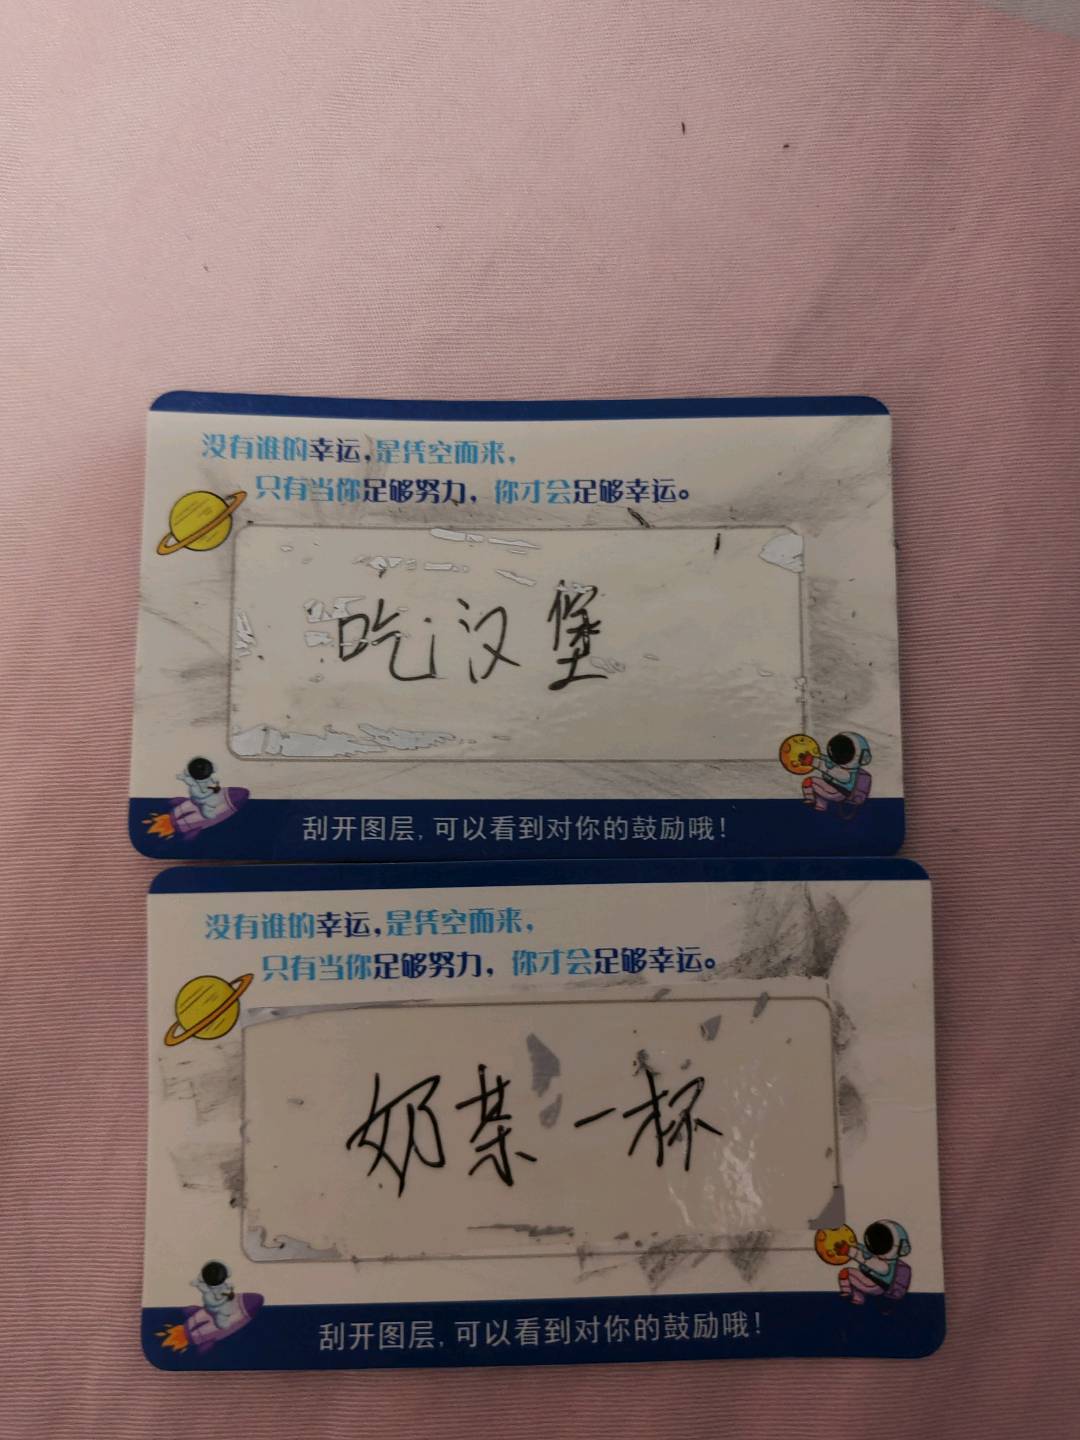 没有谁的幸运,是凭空而来,
只有当你足够努力，你才会足够幸运。
吃汉堡
刮开图层,可以看到对你的鼓励哦!
没有谁的幸运,是凭空而来,
只有当你足够努力，你才会足够幸运。
奶茶一杯
刮开图层,可以看到对你的鼓励哦!